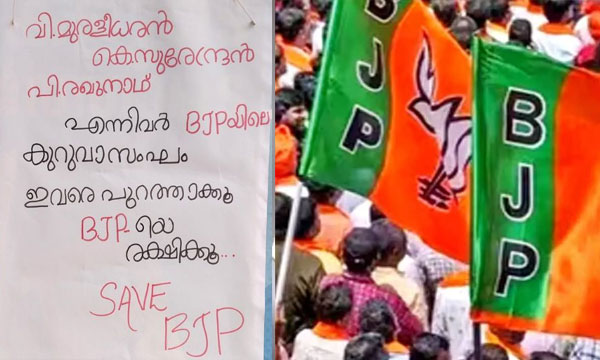 വി.മുരളീധരൻ
കെ.സുരേന്ദ്രൻ
പി.രഘുനാഥ്
എന്നിവർ BJPയിലെ
കുറുവാസംഘം
ഇവരെ പുറത്താക്കൂ
BJP യെ
രക്ഷിക്കൂ...
SAVE
BJP
BJP
BJP